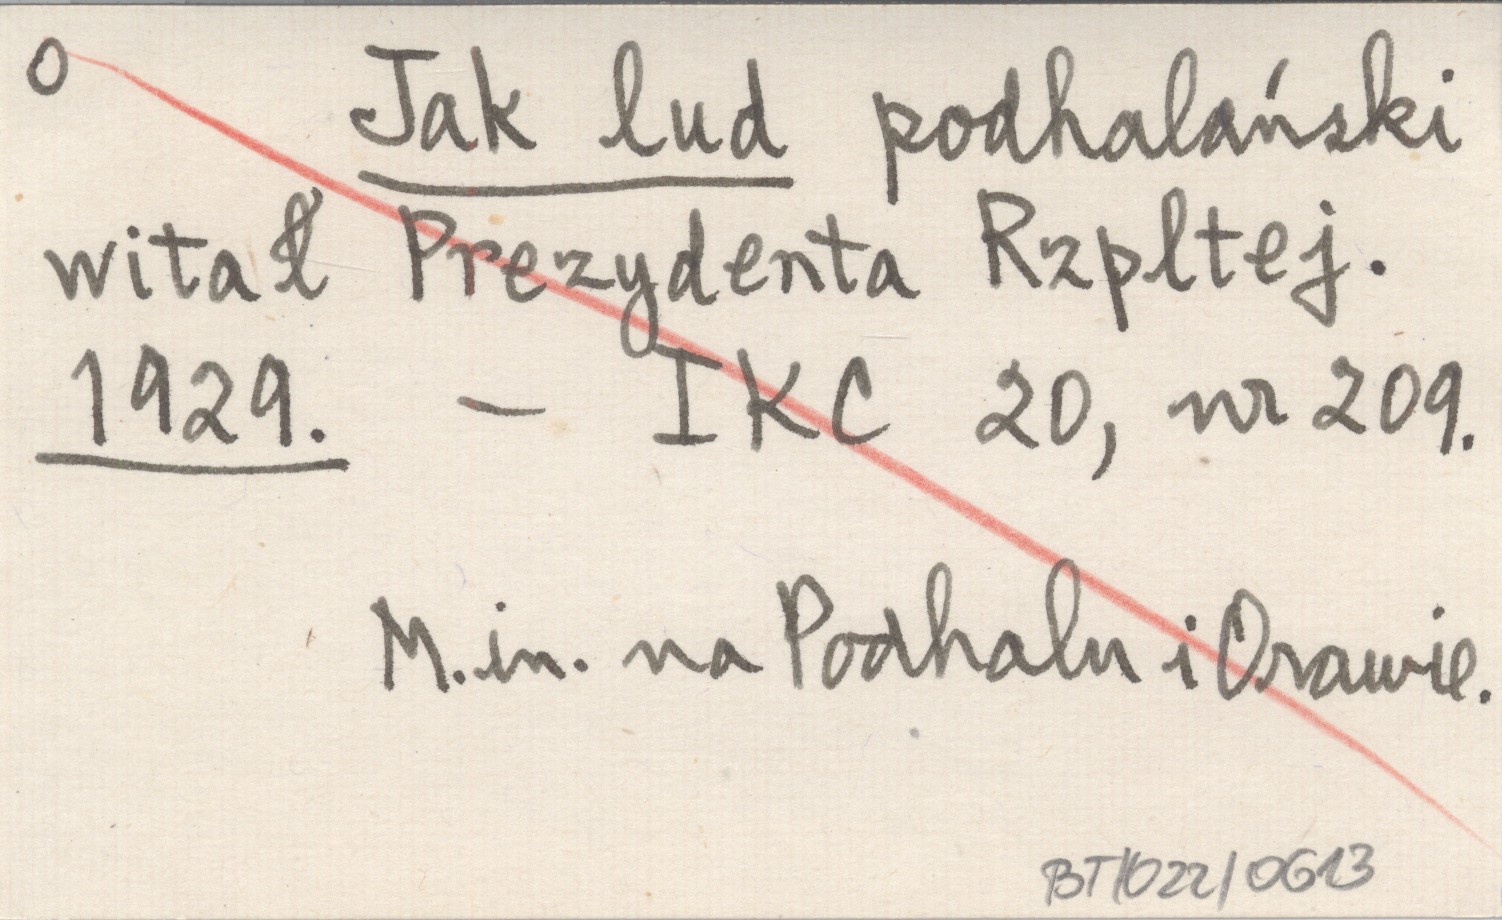 O Jak lud podhalański
witał Prezydenta Rzpltej.
1929. – IKC 20, nr 209.
M.in. na Podhalu i Orawie.
BT/022/0613